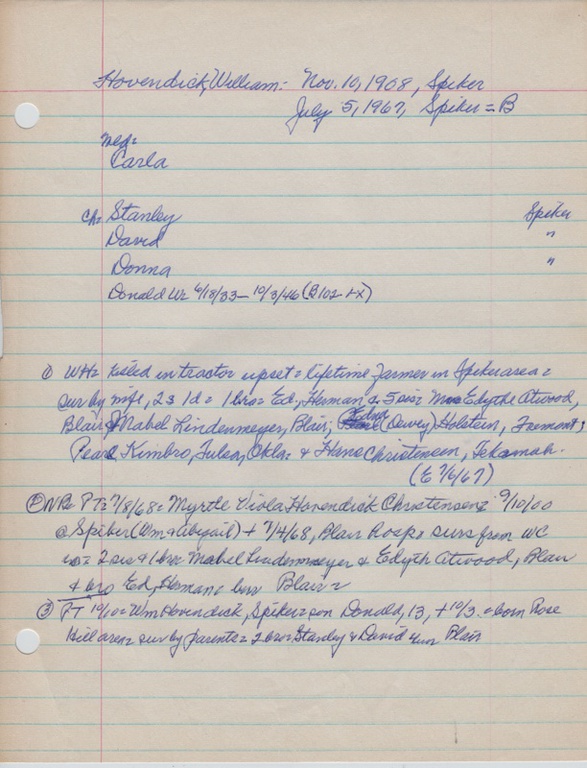 Hovendick, William:- Nov. 10, 1908, Spiker
July 5, 1967, Spiker = B
Md:
Carla
Ch: Stanley Spiker
David "
Donna "
Donald Wr 6/18/33 - 10/3/46 (B102-LX)
① WH= killed in tractor upset = lifetime farmer in Spiker area =
sur by wife, 2s 1d = 1 bro= Ed, Herman & 5 sis= Mrs Edythe Atwood,
Blair & Mabel Lindenmeyer, Blair, Edna (Dewey) Holstein, Fremont,
Pearl Kimbro, Tulsa, Okla: & Hans Christensen, Tekamah.
(E 7/6/67)
② PT= 7/8/68= Myrtle Viola Hovendick Christensen= 9/10/00
@ Spiker (Wm & Abigail) + 7/4/68, Blair Hosp= surs from WC
= 2 sis & 1 bro= Mabel Lindenmeyer & Edyth Atwood, Blair
& bro Ed, Herman= bur Blair
③ PT 10/10= Wm Hovendick, Spiker= son Donald, 13, + 10/3. = born Rose
Hill area= sur by parents= 2 bro= Stanley & David bur Blair